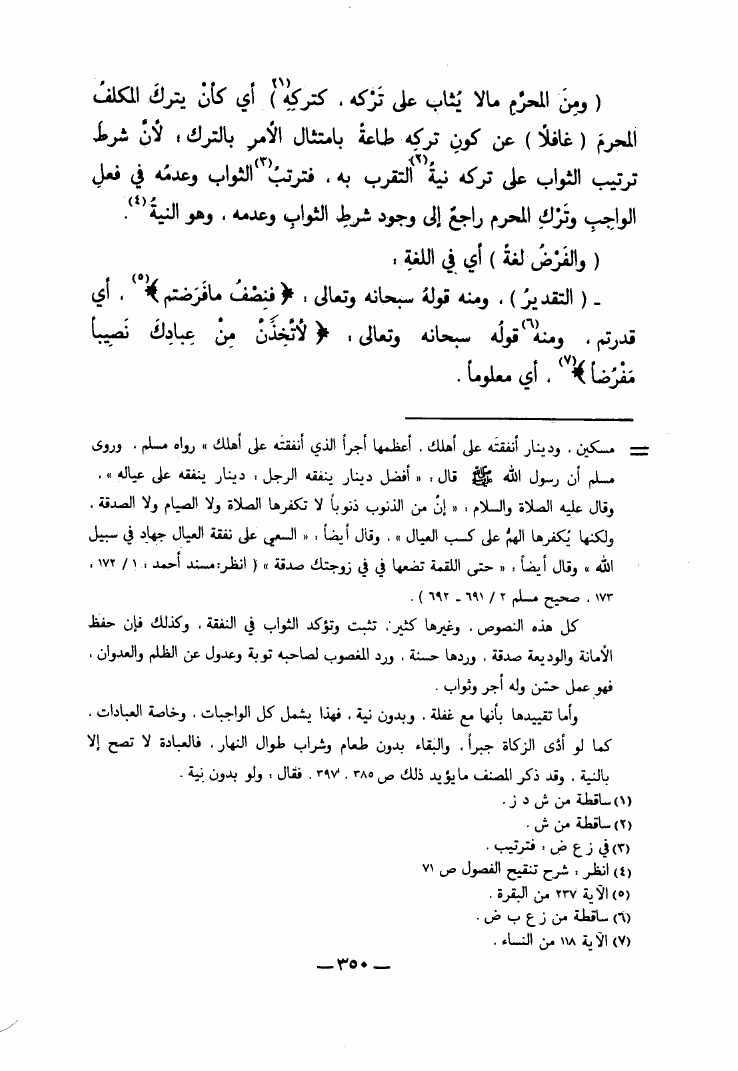 ( ومِنَ المحرَّمِ مالا يُثاب على تَرْكه ، كتركِهِ(١) ) أي كأنْ يتركَ المكلفُ
المحرمَ ( غافلاً ) عن كونِ تركِه طاعةً بامتثال الأمرِ بالترك ؛ لأنَّ شرطَ
ترتيب الثواب على تركه نيةُ(٢) التقرب به ، فترتبُ(٣) الثواب وعدمُه في فعلِ
الواجبِ وتَرْكِ المحرم راجعٌ إلى وجود شرطِ الثوابِ وعدمه ، وهو النيةُ(٤) .
( والفَرْضُ لغةً ) أي في اللغةِ :
ـ ( التقديرُ ) ، ومنه قولهُ سبحانه وتعالى : ﴿ فنِصْفُ مافَرَضتم ﴾(٥) ، أي
قدرتم ، ومنه(٦) قولُه سبحانه وتعالى : ﴿ لأَتَّخِذَنَّ مِنْ عِبادِكَ نَصِيباً
مَفْرُضاً ﴾(٧) ، أي معلوماً .
= مسكين ، ودينار أنفقتَه على أهلك ، أعظمها أجراً الذي أنفقتَه على أهلك » رواه مسلم . وروى
مسلم أن رسول الله ﷺ قال : « أفضل دينار ينفقه الرجل : دينار ينفقه على عياله » .
وقال عليه الصلاة والسلام : « إنَّ من الذنوب ذنوباً لا تكفرها الصلاة ولا الصيام ولا الصدقة ،
ولكنها يُكفرها الهمُّ على كسب العيال » ، وقال أيضاً : « السعي على نفقة العيال جهاد في سبيل
الله » وقال أيضاً : « حتى اللقمة تضعها في في زوجتك صدقة » ( انظر:مسند أحمد : ١ / ١٧٢ ،
١٧٣ ، صحيح مسلم ٢ / ٦٩١ ـ ٦٩٢ ) .
كل هذه النصوص ، وغيرها كثير، تثبت وتؤكد الثواب في النفقة ، وكذلك فإن حفظ
الأمانة والوديعة صدقة ، وردها حسنة ، ورد المغصوب لصاحبه توبة وعدول عن الظلم والعدوان ،
فهو عمل حسَن وله أجر وثواب .
وأما تقييدها بأنها مع غفلة ، وبدون نية ، فهذا يشمل كل الواجبات ، وخاصة العبادات ،
كما لو أدَّى الزكاة جبراً ، والبقاء بدون طعام وشراب طوال النهار ، فالعبادة لا تصح إلا
بالنية ، وقد ذكر المصنف مايؤيد ذلك ص ٣٨٥ ، ٣٩٧ . فقال : ولو بدون نية .
(١) ساقطة من ش د ز .
(٢) ساقطة من ش .
(٣) في ز ع ض : فترتيب .
(٤) انظر : شرح تنقيح الفصول ص ٧١
(٥) الآية ٢٣٧ من البقرة .
(٦) ساقطة من ز ع ب ض .
(٧) الآية ١١٨ من النساء .
ـ ٣٥٠ ـ